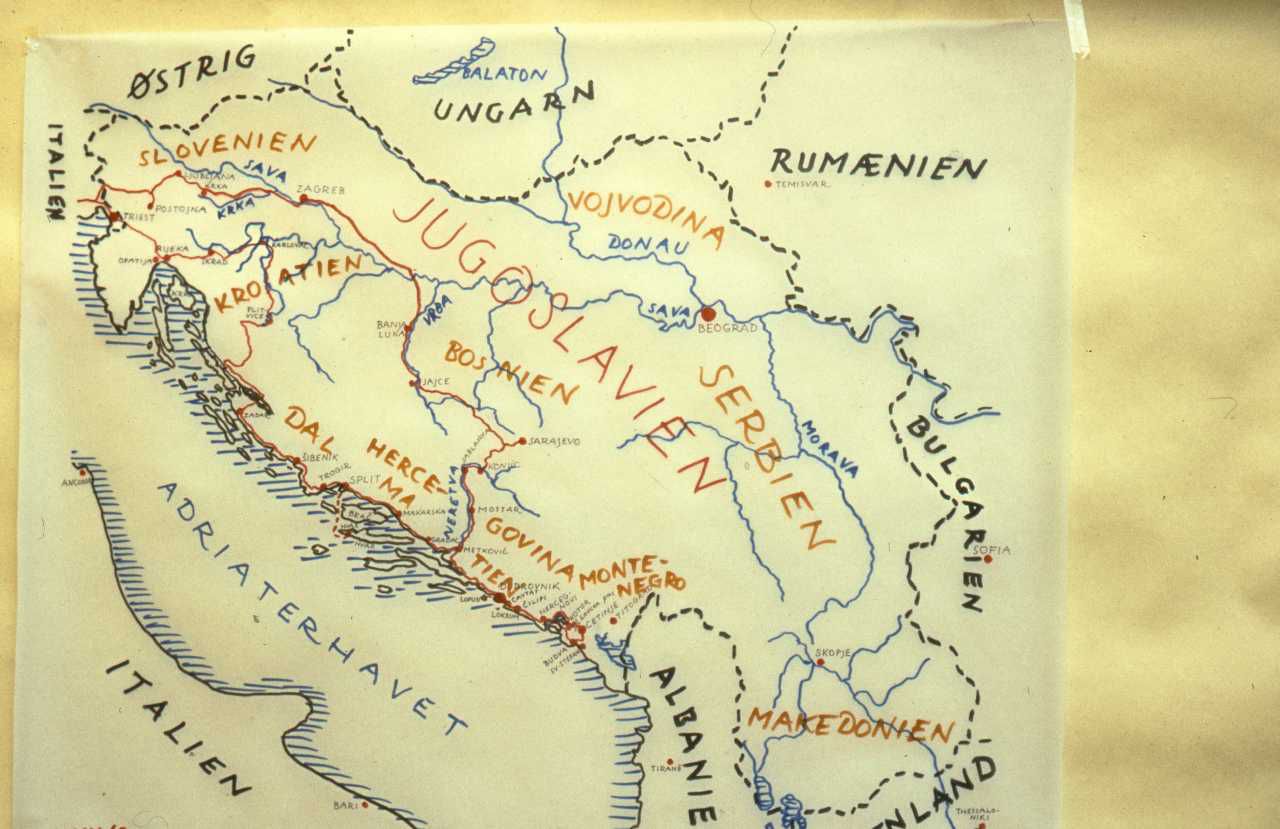 ØSTRIG
BALATON
UNGARN
ITALIEN
SLOVENIEN
RUMÆNIEN
SAVA
LJUBLJANA
TEMISVAR
KRKA
ZAGREB
POSTOJNA
KRKA
VOJVODINA
TRIEST
JUGOSLAVIEN
DONAU
RIJEKA
KARLOVAC
OPATIJA
SKRAD
KROATIEN
KRK
PLIT-
VICE
VRBA
SAVA
BEOGRAD
BANJA
LUKA
BOSNIEN
JAJCE
SERBIEN
BULGARIEN
ZADAR
DAL
MA
TIEN
HERCE-
GOVINA
SARAJEVO
MORAVA
JABLANICA
ŠIBENIK
KONJIC
ANCONA
TROGIR
SPLIT
NERETVA
ADRIATERHAVET
BRAČ
MAKARSKA
MOSTAR
HVAR
HVAR
METKOVIĆ
SOFIA
MONTE-
NEGRO
DUBROVNIK
LOPUD
CAVTAT
ČILIPI
LOKRUM
HERCEG-
NOVI
KOTOR
CETINJE
TITOGRAD
BUDVA
SV. STEFAN
SKOPJE
ITALIEN
ALBANIE
MAKEDONIEN
TIRANE
BARI
NLAND
THESSALO-
NIKI